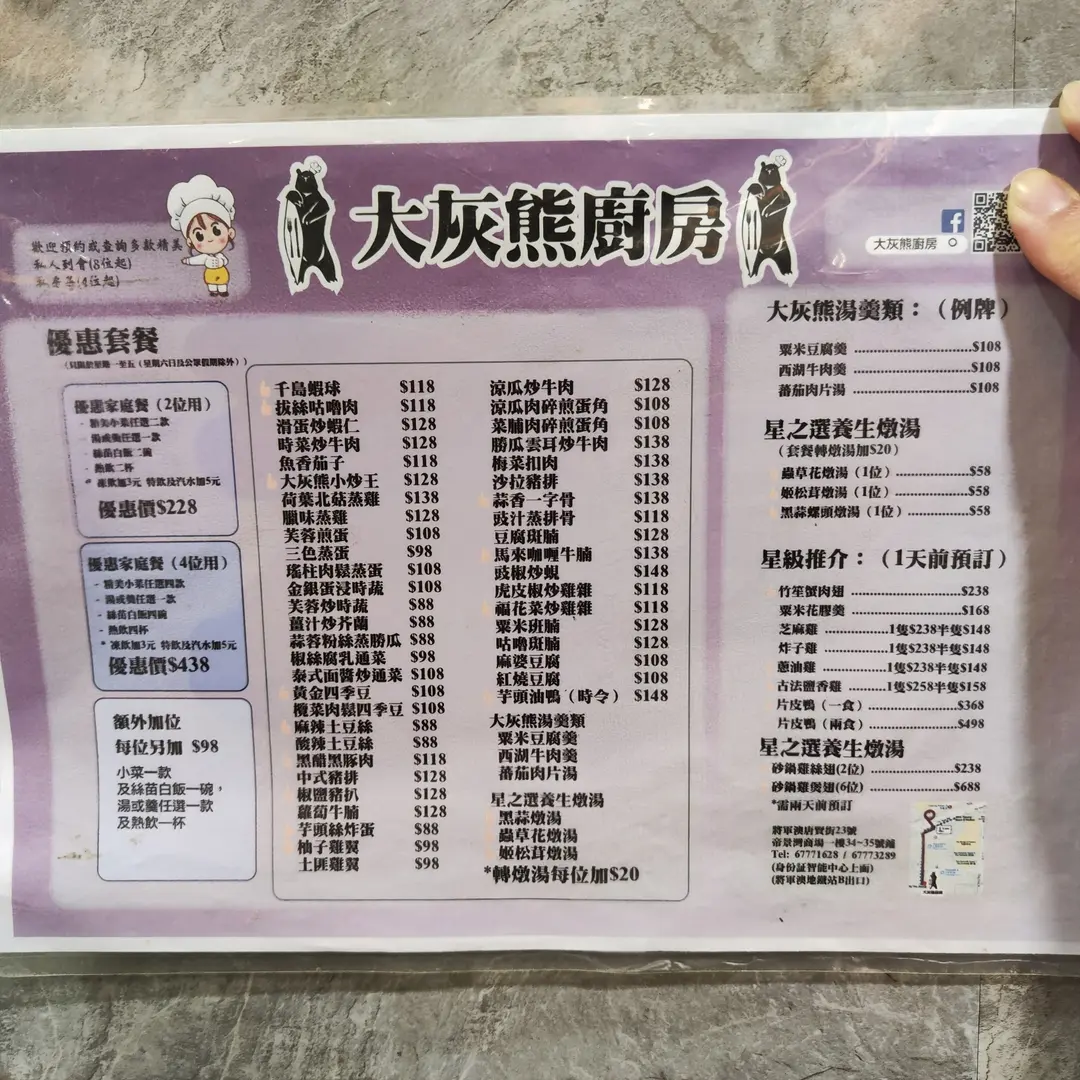 大灰熊廚房
歡迎預約或查詢多款精美
私人到會(8位起)
私房菜(4位起)
大灰熊廚房
優惠套餐
(只限於星期一至五(星期六日及公眾假期除外))
優惠家庭餐(2位用)
- 精美小菜任選二款
- 湯或羹任選一款
- 絲苗白飯二碗
- 熱飲二杯
* 凍飲加3元 特飲及汽水加5元
優惠價$228
優惠家庭餐(4位用)
- 精美小菜任選四款
- 湯或羹任選一款
- 絲苗白飯四碗
- 熱飲四杯
* 凍飲加3元 特飲及汽水加5元
優惠價$438
額外加位
每位另加 $98
小菜一款
及絲苗白飯一碗,
湯或羹任選一款
及熱飲一杯
千島蝦球 $118
拔絲咕嚕肉 $118
滑蛋炒蝦仁 $128
時菜炒牛肉 $128
魚香茄子 $118
大灰熊小炒王 $128
荷葉北菇蒸雞 $138
臘味蒸雞 $128
芙蓉煎蛋 $108
三色蒸蛋 $98
瑤柱肉鬆蒸蛋 $108
金銀蛋浸時蔬 $108
芙蓉炒時蔬 $88
薑汁炒芥蘭 $88
蒜蓉粉絲蒸勝瓜 $88
椒絲腐乳通菜 $98
泰式面醬炒通菜 $108
黃金四季豆 $108
欖菜肉鬆四季豆 $108
麻辣土豆絲 $88
酸辣土豆絲 $88
黑醋黑豚肉 $118
中式豬排 $128
椒鹽豬扒 $128
蘿蔔牛腩 $128
芋頭絲炸蛋 $88
柚子雞翼 $98
土匪雞翼 $98
涼瓜炒牛肉 $128
涼瓜肉碎煎蛋角 $108
菜脯肉碎煎蛋角 $108
勝瓜雲耳炒牛肉 $138
梅菜扣肉 $138
沙拉豬排 $128
蒜香一字骨 $138
豉汁蒸排骨 $118
豆腐斑腩 $128
馬來咖喱牛腩 $138
豉椒炒蜆 $148
虎皮椒炒雞雜 $118
福花菜炒雞雜 $118
粟米班腩 $128
咕嚕斑腩 $128
麻婆豆腐 $108
紅燒豆腐 $108
芋頭油鴨(時令) $148
大灰熊湯羹類
粟米豆腐羹
西湖牛肉羹
蕃茄肉片湯
星之選養生燉湯
黑蒜燉湯
蟲草花燉湯
姬松茸燉湯
*轉燉湯每位加$20
大灰熊湯羹類:(例牌)
粟米豆腐羹 $108
西湖牛肉羹 $108
蕃茄肉片湯 $108
星之選養生燉湯
(套餐轉燉湯加$20)
蟲草花燉湯(1位) $58
姬松茸燉湯(1位) $58
黑蒜螺頭燉湯(1位) $58
星級推介:(1天前預訂)
竹笙蟹肉翅 $238
粟米花膠羹 $168
芝麻雞 1隻$238半隻$148
炸子雞 1隻$238半隻$148
蔥油雞 1隻$238半隻$148
古法鹽香雞 1隻$258半隻$158
片皮鴨(一食) $368
片皮鴨(兩食) $498
星之選養生燉湯
砂鍋雞絲翅(2位) $238
砂鍋雞煲翅(6位) $688
*需兩天前預訂
將軍澳唐賢街23號
帝景灣商場一樓34~35號舖
Tel: 67771628 / 67773289
(身份証智能中心上面)
(將軍澳地鐵站B出口)